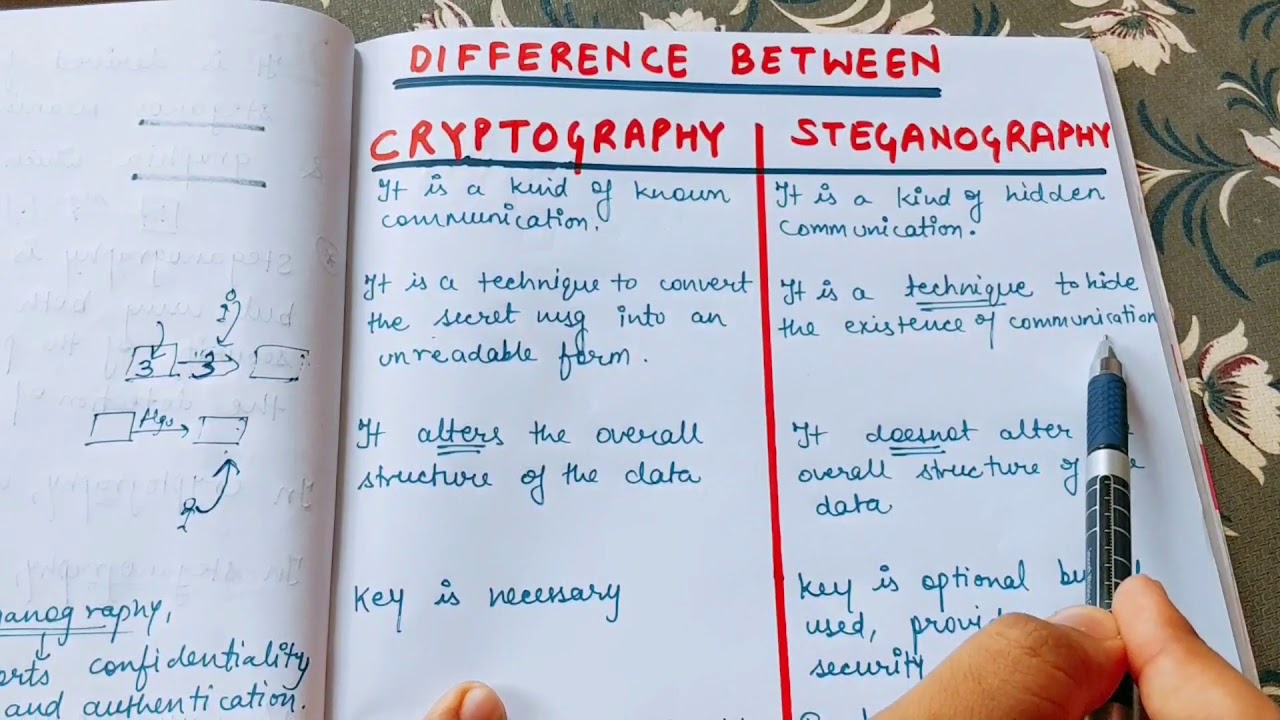 DIFFERENCE BETWEEN
CRYPTOGRAPHY
It is a kind of known
communication.
It is a technique to convert
the secret msg into an
unreadable form.
It alters the overall
structure of the data
Key is necessary
STEGANOGRAPHY
It is a kind of hidden
communication.
It is a technique to hide
the existence of communication
It doesnot alter
overall structure of
data
Key is optional
used,
security
3
3
Algo
confidentiality
and authentication.